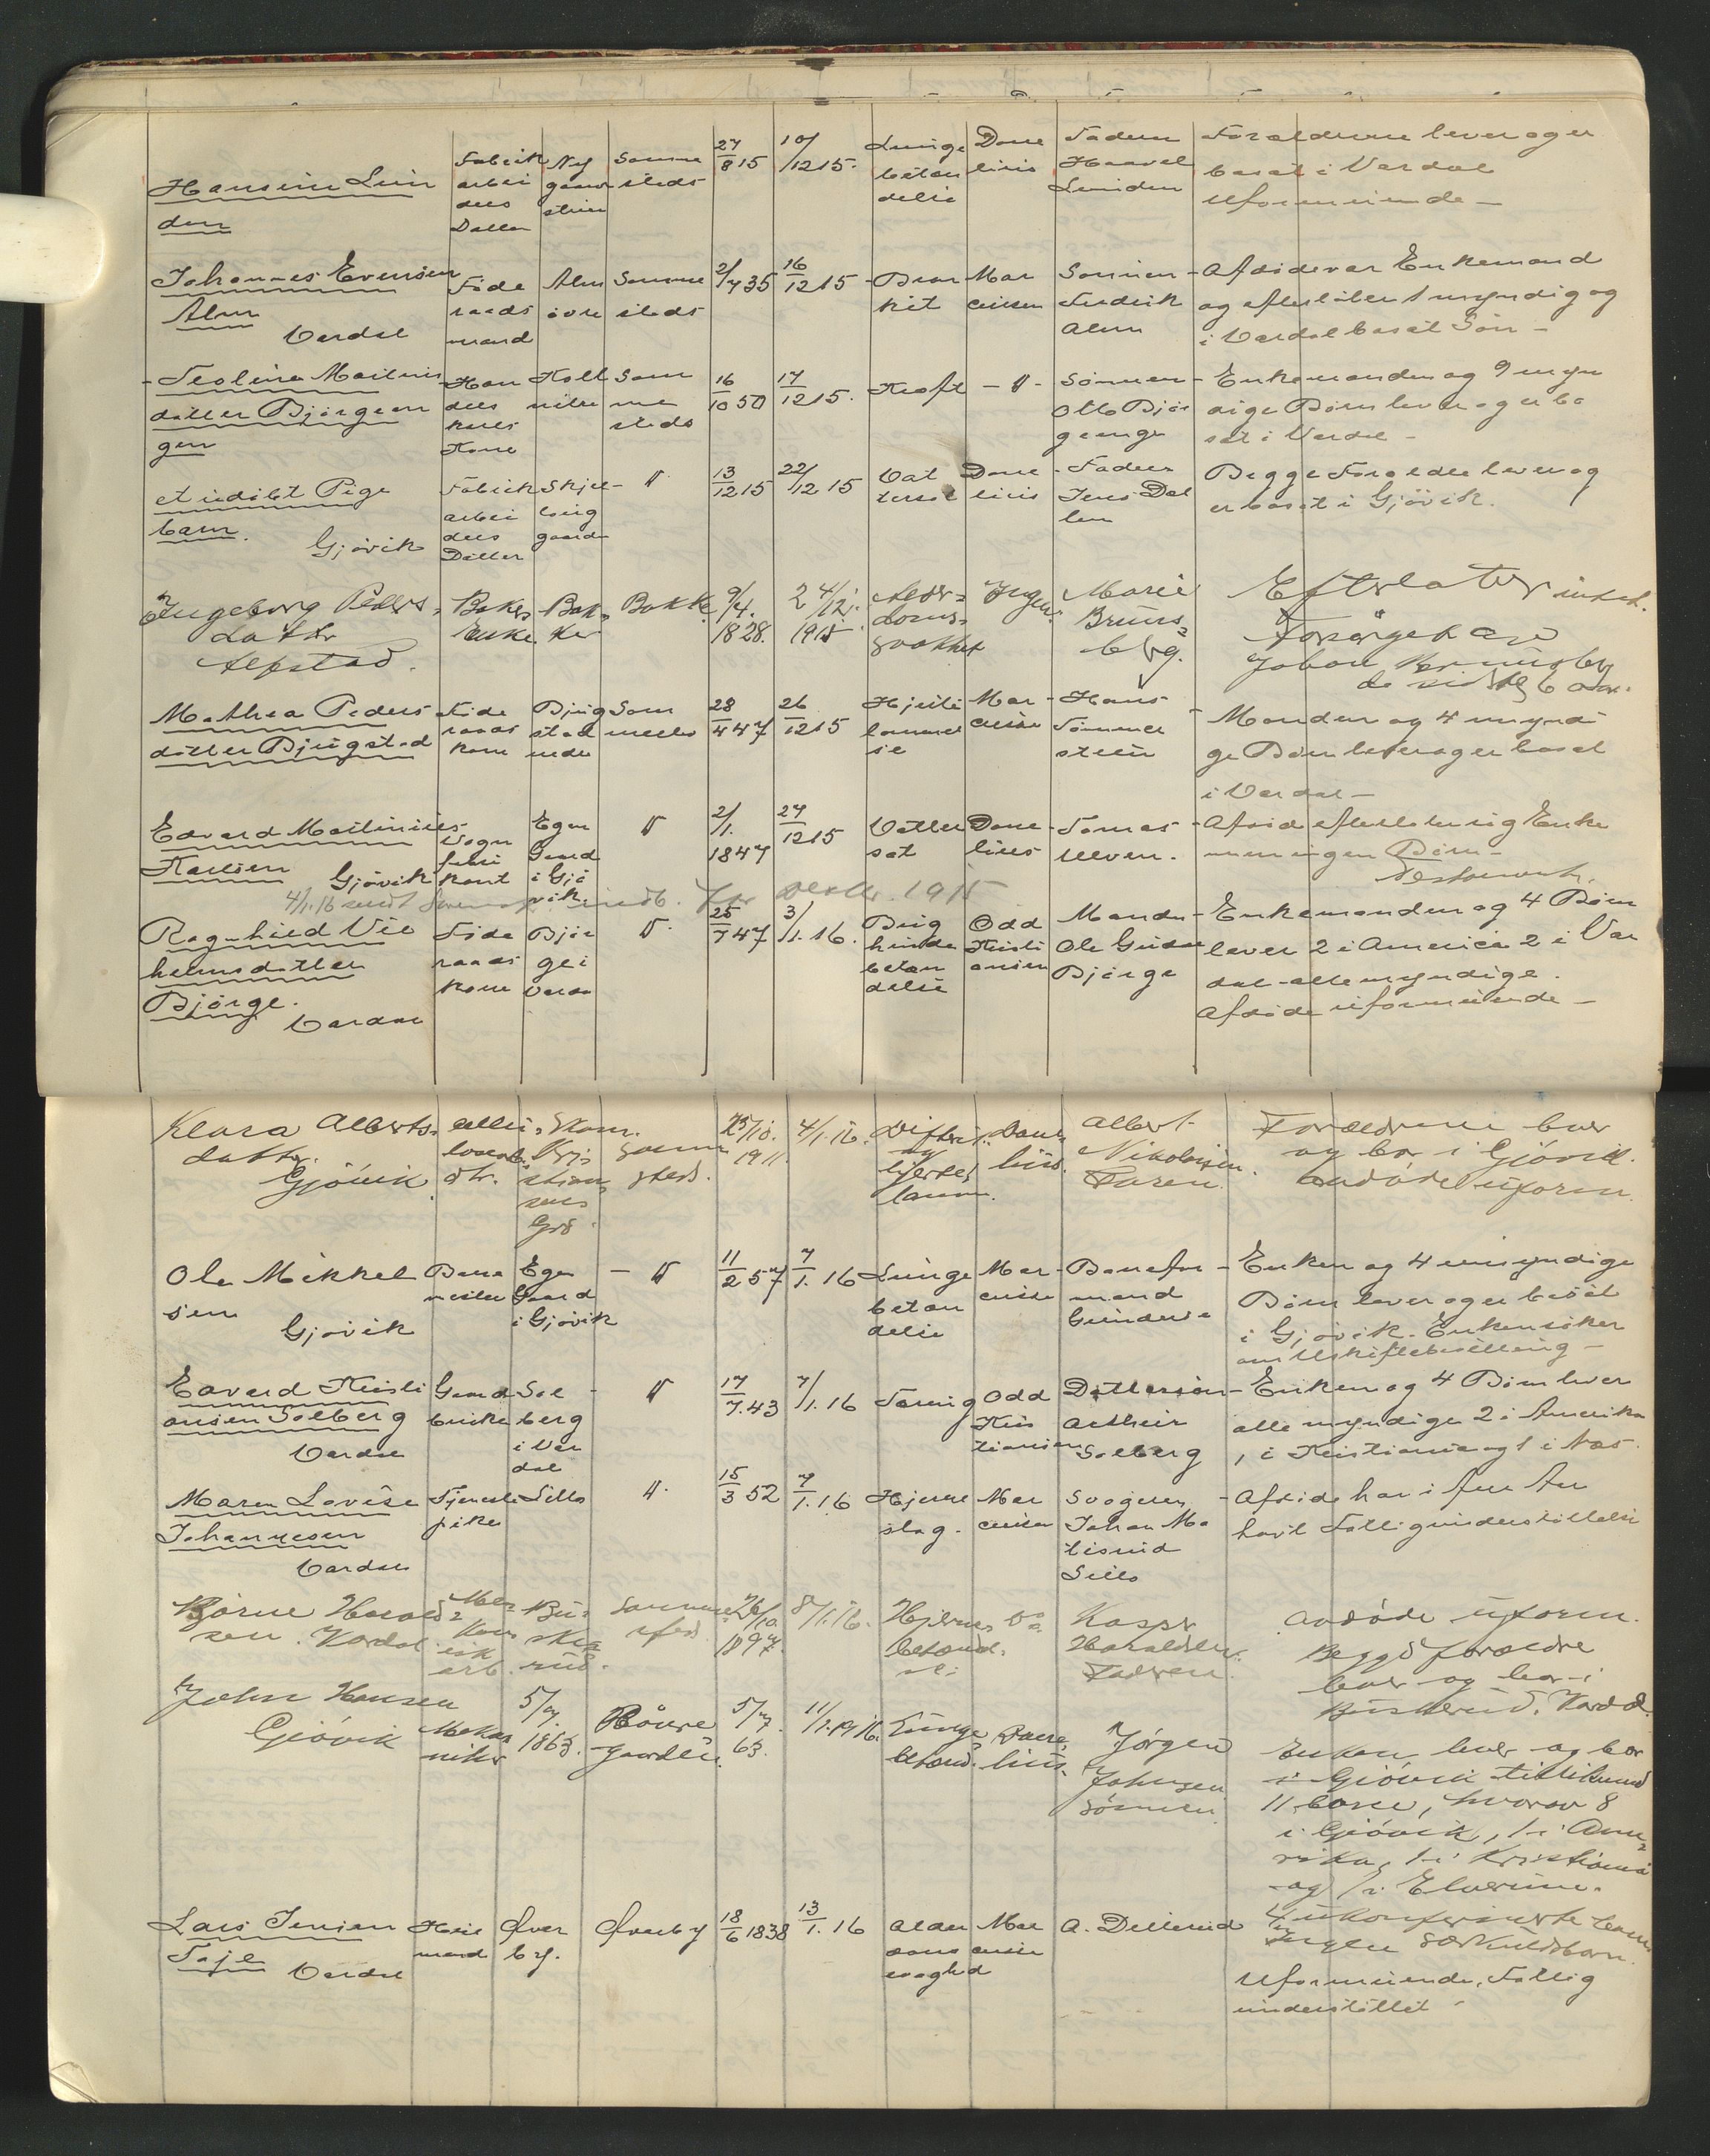 Hansine Lun
den
Fabrik
arbei
ders
Datter
Ny
gaard
stuen
Samme
steds
27/8 15
10/12 15.
Lunge
betæn
delse
Dane
lius
Faderen
Haavel
Lunden
Forælderne lever og er
bosat i Vardal
Uformuende —
Johannes Evensen
Alm
Vardal
Føde
raads
mand
Alm
övre
Samme
steds
2/7 35
16/12 15
Bron
kit
Mar
cussen
Sønnen
Fredrik
Alm
Afdøde var Enkemand
og efterlater 1 myndig og
i Vardal bosat Søn —
Teoline Martinis
datter Bjørgeen
gen
Han
dels
karls
Kone
Sam
me
steds
16/10 50
17/12 15.
Kræft
— " -
Sønnen
Otto Bjør
geenge
Enkemanden og 9 myn
dige Børn lever og er bo
sat i Vardal —
et udöbt Pige
barn.
Gjövik
Fabrik
arbei
ders
Datter
Skjel
ling
gaarde
- "
13/12 15
22/12 15
Vat
tersot
Dane
lius
Faderen
Jens Dal
len
Begge Forældre lever og
er bosat i Gjövik.
Ingeborg Peders-
datter
Alfstad.
Bakers
Enke
Bak-
ker
Bakke
9/4.
1828.
24/12.
1915
Alder-
doms-
svakhet
Ingen.
Marie
Bruns-
berg.
Efterlater intet.
Forsørget av
Johan Brunsberg
de sidste 6 aar.
Mathea Peders
datter Bjugstad
Føde
raads
kone
Bjug
stad
nedre
Sam
mesteds
28/4 47
26/12 15
Hjerte
lammel
se
Mar
cussen
Hans
Sommer
steen
Manden og 4 myndi
ge Børn lever og er bosat
i Vardal —
Edvard Martinius
Karlsen
Gjövik
Vogn
fabri
kant
Egen
Gaard
i Gjö
vik.
"
2/1.
1847
27/12 15
Vatter
sot
Dane
lius
Tomas
Ulven.
Afdøde efterlater sig Enke
men ingen Børn —
Testament.
4/1.16 sendt indb. for Decbr. 1915
Ragnhild Vil
helmsdatter
Bjørge.
Vardal
Føde
raads
kone
Bjør
ge i
Vardal
".
25/7 47
3/1.16.
Lung
hinde
betæn
delse
Odd
Kristi
ansen
Manden
Ole
Bjørge
Enkemanden og 4 Børn
lever 2 i America 2 i Var
dal - alle myndige.
Afdøde uformuende —
Klara Alberts-
datter.
Gjövik
dtr.
Kris
tian
sens
Grd.
Samme
sted.
25/10.
1911.
4/1.16.
Difteri
og
hjerte
lamm.
Dane
lius.
Albert
Nikolaisen.
Faren.
Forældrene lever
og bor i Gjövik.
Avdøde uform.
Ole Mikkel
sen
Gjövik
Bane
mester
Egen
Gaard
i Gjövik
— "
11/2 57
7/1.16
Lunge
betæn
delse
Mar
cussen
Banefor
mand
Gundersen
Enken og 4 umyndige
Börn lever og er bosat
i Gjövik. Enken søker
om Uskiftebevilling —
Edvard Kristi
ansen Solberg
Vardal
Gaard
bruker
Sol
berg
i Var
dal
- "
17/7.43
7/1.16
Tæring
Odd
Kris
tiansen
Dattersøn
Arthur
Solberg
Enken og 4 Børn lever
alle myndige 2 i Amerika
1 i Kristiania og 1 i Næs.
Maren Lovise
Johannesen
Vardal
Tjeneste
pike
Sillo
".
15/3 52
7/1.16
Hjerne
slag.
Mar
cussen
Svogeren
Johan Ma
tisrud
Sillo
Afdøde har i flere Aar
havt Fattigunderstøttelse
Bjarne Harald-
sen. Vardal.
Mek-
an
isk
arb.
Bu-
ske
rud.
Samme
sted.
26/10.
1897.
8/1.16.
Hjerne
betænd.
else
Do
Kaspar
Haraldsen.
Faderen.
Avdøde uform.
Begge forældre
lever og bor i
Buskerud. Vardal.
John Hansen
Gjövik
Meka
niker
5/7.
1863.
Röine
gaarden.
5/7.
63.
11/1.1916.
Lunge
betænd.
Dane-
lius.
Jørgen
Johnsen
Sønnen
Enken lever og bor
i Gjövik tillikemed
11 barn, hvorav 8
i Gjövik, 1 i Ame-
rika, 1 i Kristiania
og 1 i Elverum.
4 ukonfirmerte barn
Ingen særkuldsbarn.
Lars Jensen
Vardal
mand
Øver
by.
Øverby
18/6 1838
13/1.16
Alder
doms
svaghed
Mar
cussen
A. Dellerud
Uformuende, Fattig
understøttet